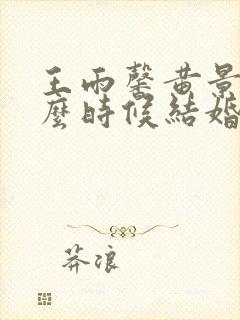 王雨馨黄景
麼時候結婚
莽浪